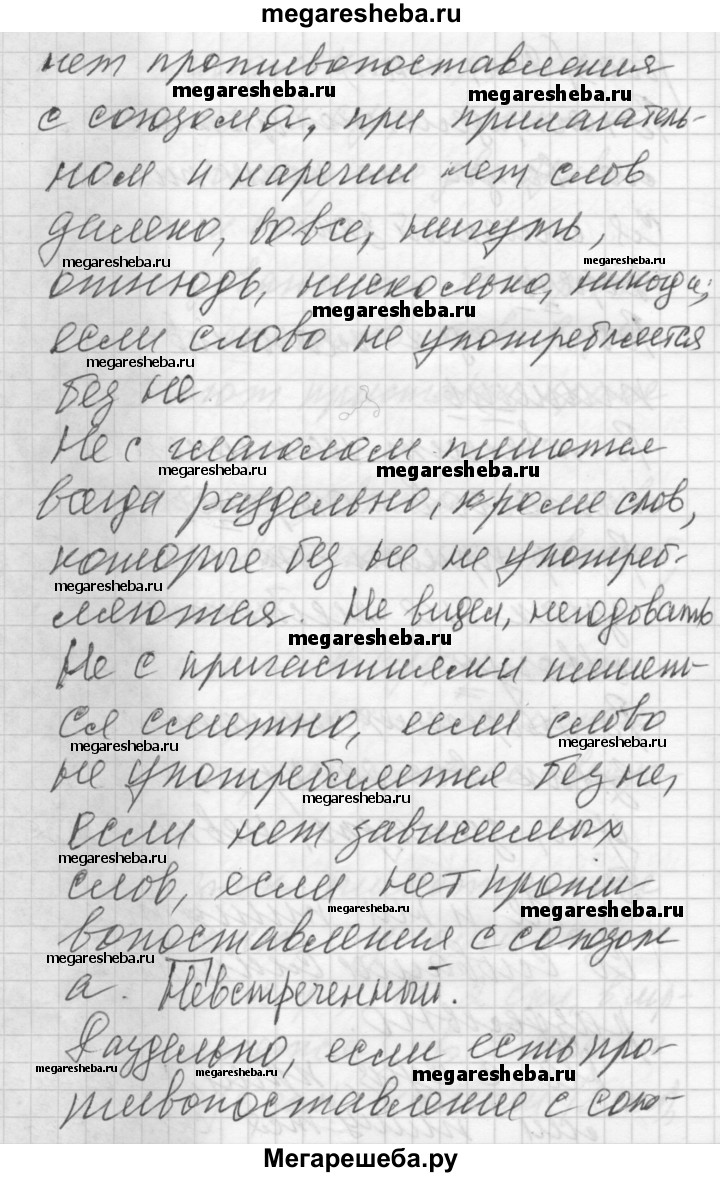 megaresheba.ru
нет противопоставления
megaresheba.ru
megaresheba.ru
с союзом а, при прилагатель-
ном и наречии нет слов
далеко, вовсе, ничуть,
megaresheba.ru
megaresheba.ru
отнюдь, нисколько, никогда;
megaresheba.ru
если слово не употребляется
megaresheba.ru
без не.
Не с глаголом пишется
megaresheba.ru
megaresheba.ru
всегда раздельно, кроме слов,
которые без не не употреб-
megaresheba.ru
ляются. Не видел, негодовать
megaresheba.ru
Не с причастиями пишет-
ся слитно, если слово
megaresheba.ru
megaresheba.ru
не употребляется без не,
megaresheba.ru
если нет зависимых
megaresheba.ru
слов, если нет проти
megaresheba.ru
megaresheba.ru
вопоставления с союзом
megaresheba.ru
а. Невстреченный.
Раздельно, если есть про-
megaresheba.ru
megaresheba.ru
megaresheba.ru
тивопоставление с сою-
Мегарешеба.ру